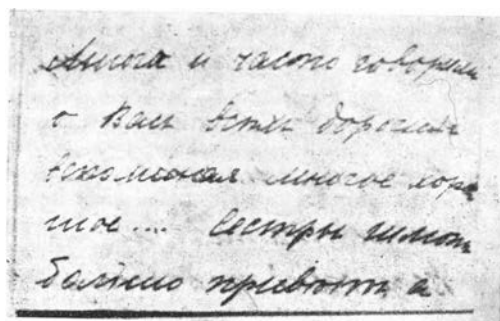 Много и часто говорили
о Вас всѣ дорогая
вспоминая многое хоро
шое.... Сестры шлютъ
большо привѣтъ а